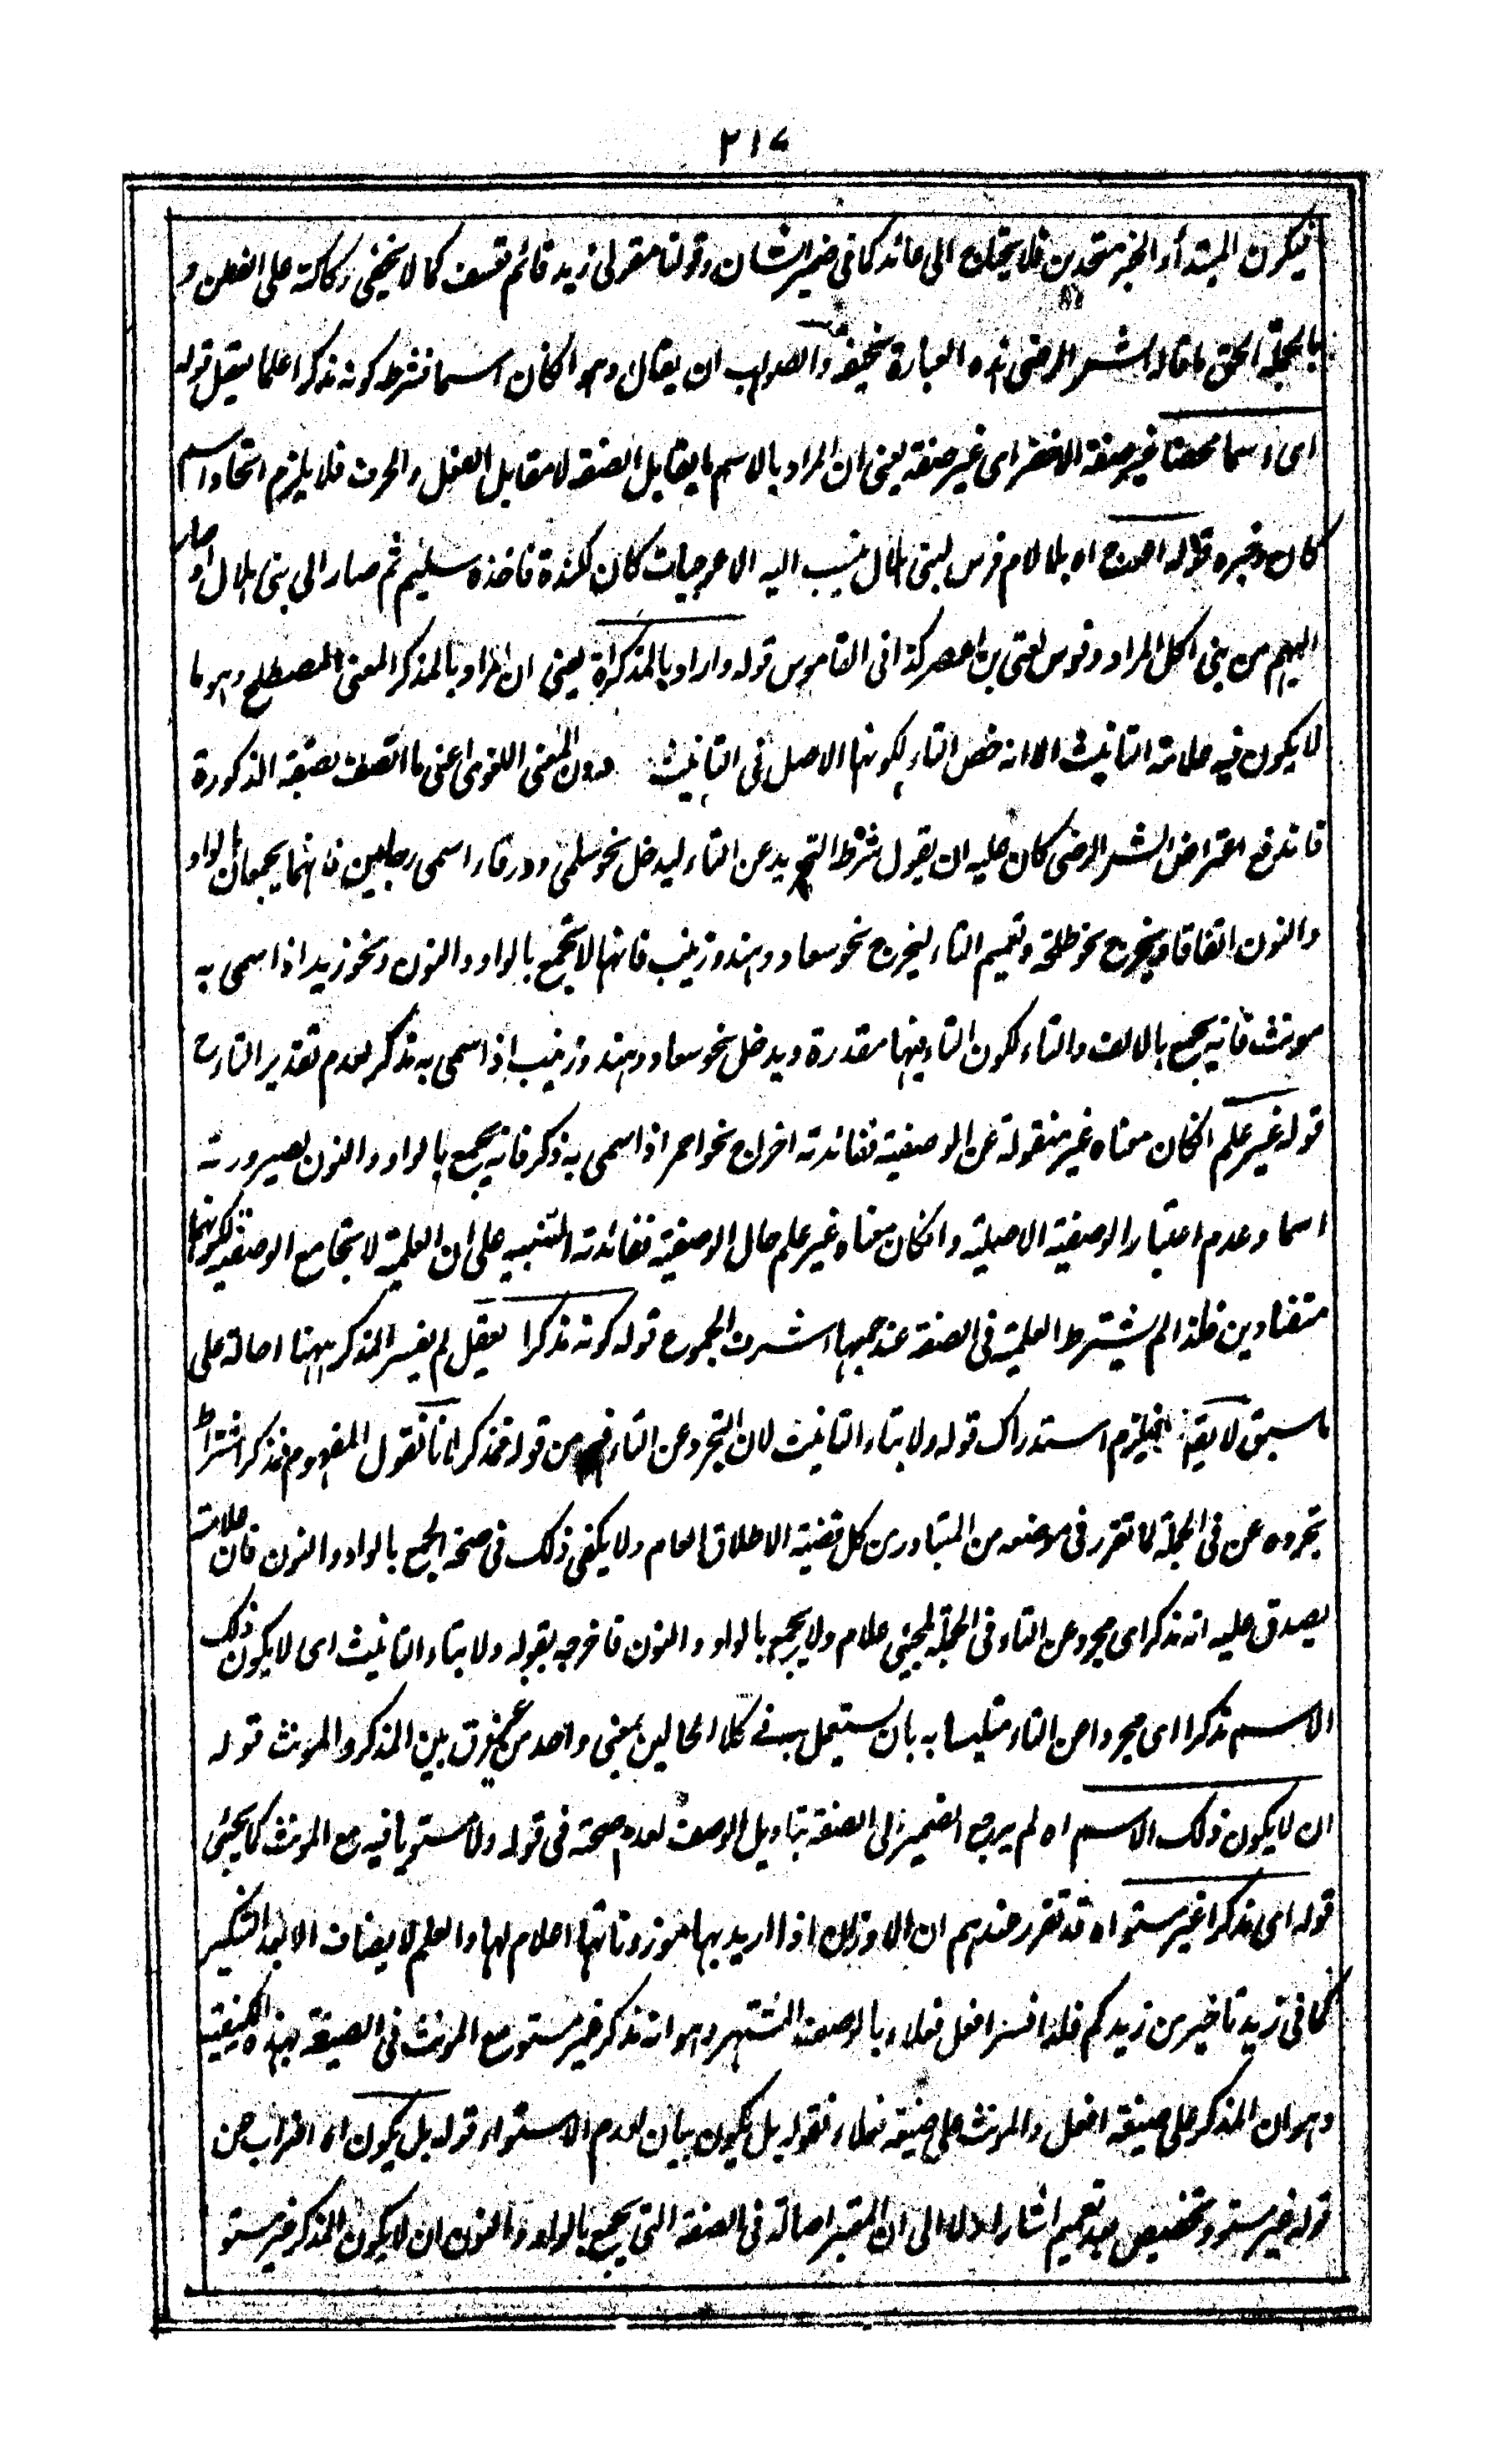 ٢١٧
فيكون المبتدأ والخبر متحدين فلا يحتاج الى عائد كما فى ضمير الشان وقولنا مقولى زيد قائم تعسف كما لا يخفى ركاكته على الفطن و
بالجملة الحق ما قاله الشر الرضى هذه العبارة سخيفة والصواب ان يقال وهو انكان اسما فشرطه كونه مذكرا علما يعقل قوله
اى اسما محضا غير صفة الاخضر اى غير صفة يعنى ان المراد بالاسم ما يقابل الصفة لا مقابل الفعل والحرف فلا يلزم اتحاد اسم
كان وخبره قوله اعوج اه بلا لام فرس لبنى هلال ينسب اليه الاعوجيات كان لكندة فاخذه سليم ثم صار الى بنى هلال او صار
اليهم من بنى اكل المرار وفرس لغنى بن اعصر كذا فى القاموس قوله واراد بالمذكر اه يعنى ان المراد بالمذكر المعنى المصطلح وهو ما
لا يكون فيه علامة التانيث الا انه خص التاء لكونها الاصل فى التانيث دون المعنى اللغوى اعنى ما اتصف بصفة الذكورة
فاندفع اعتراض الشر الرضى كان عليه ان يقول شرط التجريد عن التاء ليدخل نحو سلمى وورقاء اسمى رجلين فانهما يجمعان بالواو
والنون اتفاقا ويخرج نحو طلحة وتعميم التاء ليخرج نحو سعاد وهند وزينب فانها لا تجمع بالواو والنون ونحو زيد اذا سمى به
مونث فانه يجمع بالالف والتاء لكون التاء فيها مقدرة ويدخل نحو سعاد وهند وزينب اذا سمى به مذكر لعدم تقدير التاء ح
قوله غير علم انكان معناه غير منقولة عن الوصفية ففائدته اخراج نحو احمر اذا سمى به ذكر فانه يجمع بالواو والنون لصيرورته
اسما وعدم اعتبار الوصفية الاصلية وانكان معناه غير علم حال الوصفية ففائدته التنبيه على ان العلمية لا تجامع الوصفية لكونهما
متضادين فلذا لم يشترط العلمية فى الصفة عند جمعها اشرف الجموع قوله كونه مذكرا يعقل لم يفسر المذكر ههنا احالة على
ما سبق لا يقه فيلزم استدراك قوله ولا بتاء التانيث لان التجرد عن التاء من قوله فمذكر لانا نقول المفهوم فمذكر اشتراط
تجرده عن فى الجملة لما تقرر فى موضعه من المتبادر من كل قضية الاطلاق العام ولا يكفى ذلك فى صحة الجمع بالواو والنون فان علامة
يصدق عليه انه مذكر اى مجرد عن التاء فى الجملة لمجيئ علام ولا يجمع بالواو والنون فاخرجه بقوله ولا بتاء التانيث اى لا يكون ذلك
الاسم مذكرا اى مجردا من التاء متلبسا به بان يستعمل فى كلا الحالين بمعنى واحد من غير فرق بين المذكر والمونث قوله
ان لا يكون ذلك الاسم اه لم يرجع الضمير الى الصفة بتاويل الوصف لعدم صحته فى قوله ولا مستويا فيه مع المونث كما يجئى
قوله اى مذكرا غير مستو اه قد تقرر عندهم ان الاوزان اذا اريد بها موزوناتها اعلام لها والعلم لا يضاف الا بعد التنكير
كما فى زيدنا خير من زيدكم فلذا فسر افعل فعلاء بالوصف المشتهر وهو انه مذكر غير مستو مع المونث فى الصيغة بهذه الكيفية
وهو ان المذكر على صيغة افعل والمونث على صيغة فعلاء فقوله بل يكون بيان لعدم الاستواء قوله بل يكون اه اضراب عن
قوله غير مستو وتخصيص بعد تعميم اشار اولا الى ان المعتبر اصالة فى الصفة التى يجمع بالواو والنون ان لا يكون المذكر غير مستو